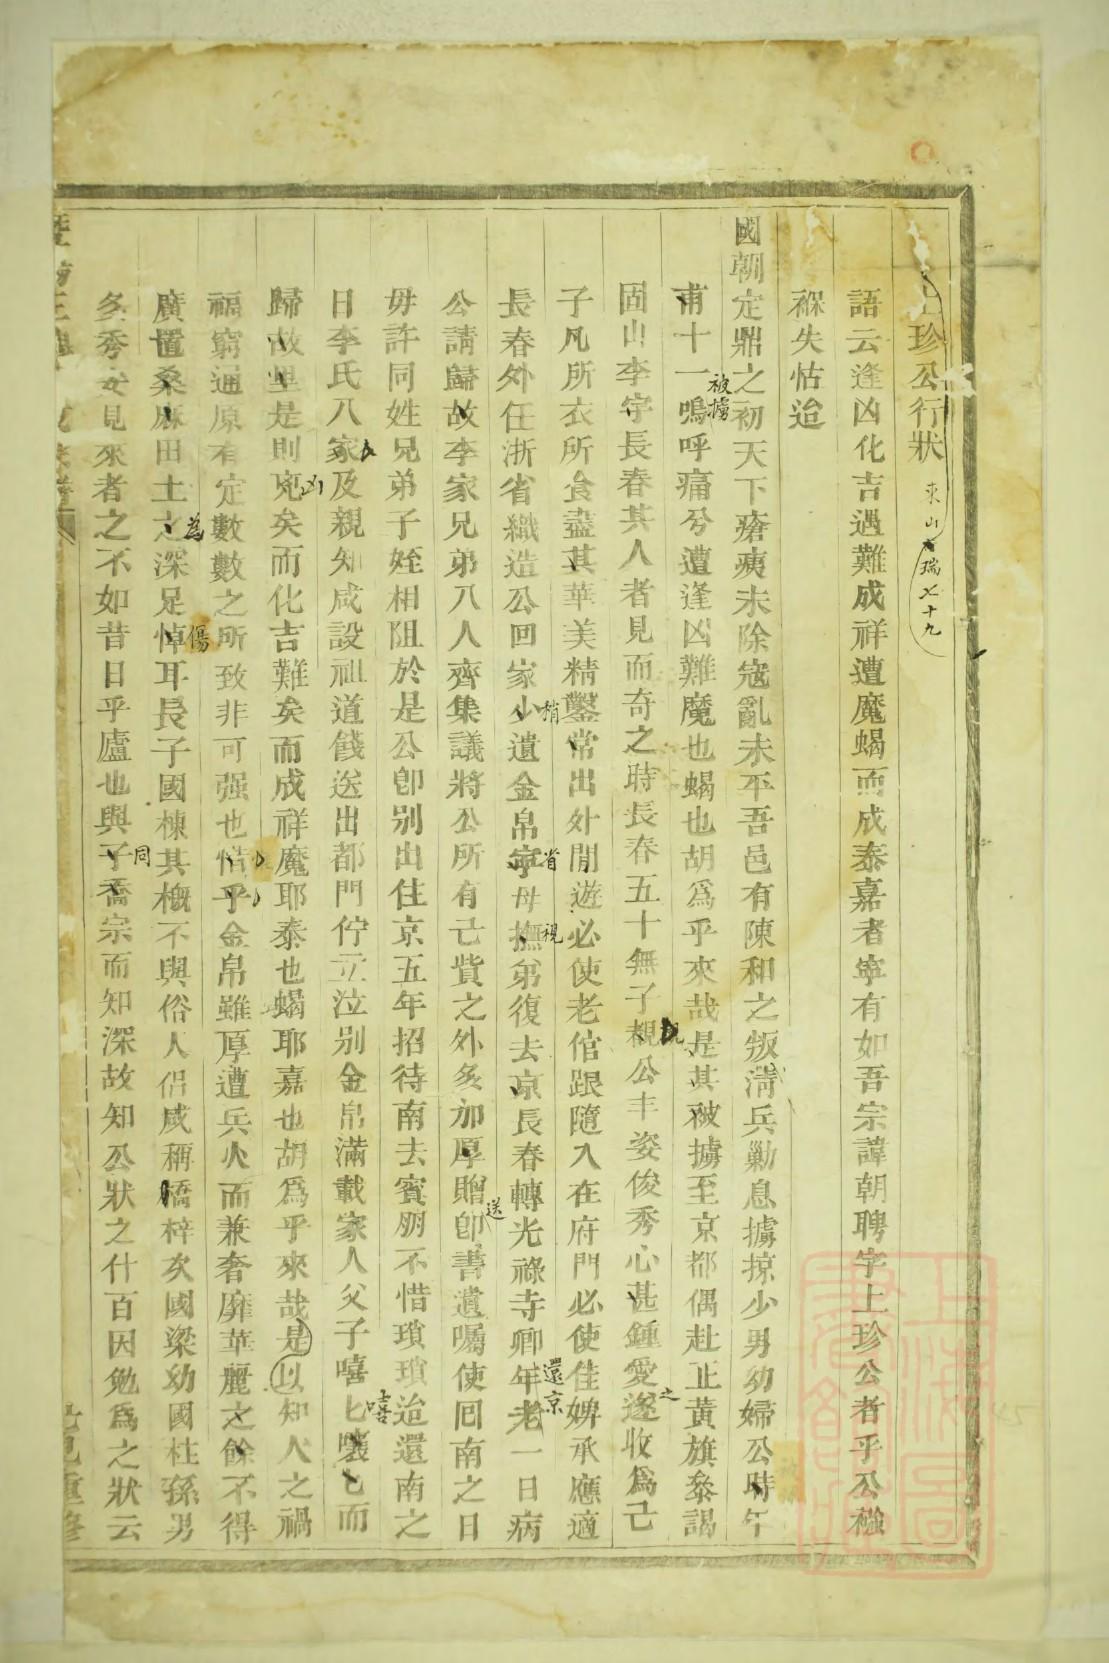 上珍公行狀 東山瑞七十九
語云逢凶化吉遇難成祥遭魔蝎而成泰嘉者寧有如吾宗諱朝聘字上珍公者乎公襁
褓失怙迨
國朝定鼎之初天下瘡痍未除寇亂未平吾邑有陳和之叛清兵勦息擄掠少男幼婦公時年
甫十一嗚呼痛兮遭逢凶難魔也蝎也胡爲乎來哉是其被擄至京都偶赴正黃旗叅謁
被擄
固山李宇長春其人者見而奇之時長春五十無子覩公丰姿俊秀心甚鍾愛遂收爲己
之
子凡所衣所食盡其華美精鑿常出外閒遊必使老倌跟隨入在府門必使佳婢承應適
長春外任浙省織造公回家少遺金帛寧母撫弟復去京長春轉光祿寺卿年老一日病
稍 省 視 還京
公請歸故李家兄弟八人齊集議將公所有己貲之外多加厚贈卽書遺囑使囘南之日
送
毋許同姓兄弟子姪相阻於是公卽别出住京五年招待南去賓朋不惜瑣瑣迨還南之
日李氏八家及親知咸設祖道餞送出都門佇立泣别金帛滿載家人父子嘻匕嚷匕而
嘻
歸故里是則兇矣而化吉難矣而成祥魔耶泰也蝎耶嘉也胡爲乎來哉是以知人之禍
凶
福窮通原有定數數之所致非可强也惜乎金帛雖厚遭兵火而兼奢靡華麗之餘不得
廣置桑麻田土之深足悼耳長子國棟其概不與俗人侶咸稱橋梓矣國梁幼國柱孫男
為 傷
多秀安見來者之不如昔日乎廬也與子喬宗而知深故知公狀之什百因勉爲之狀云
同